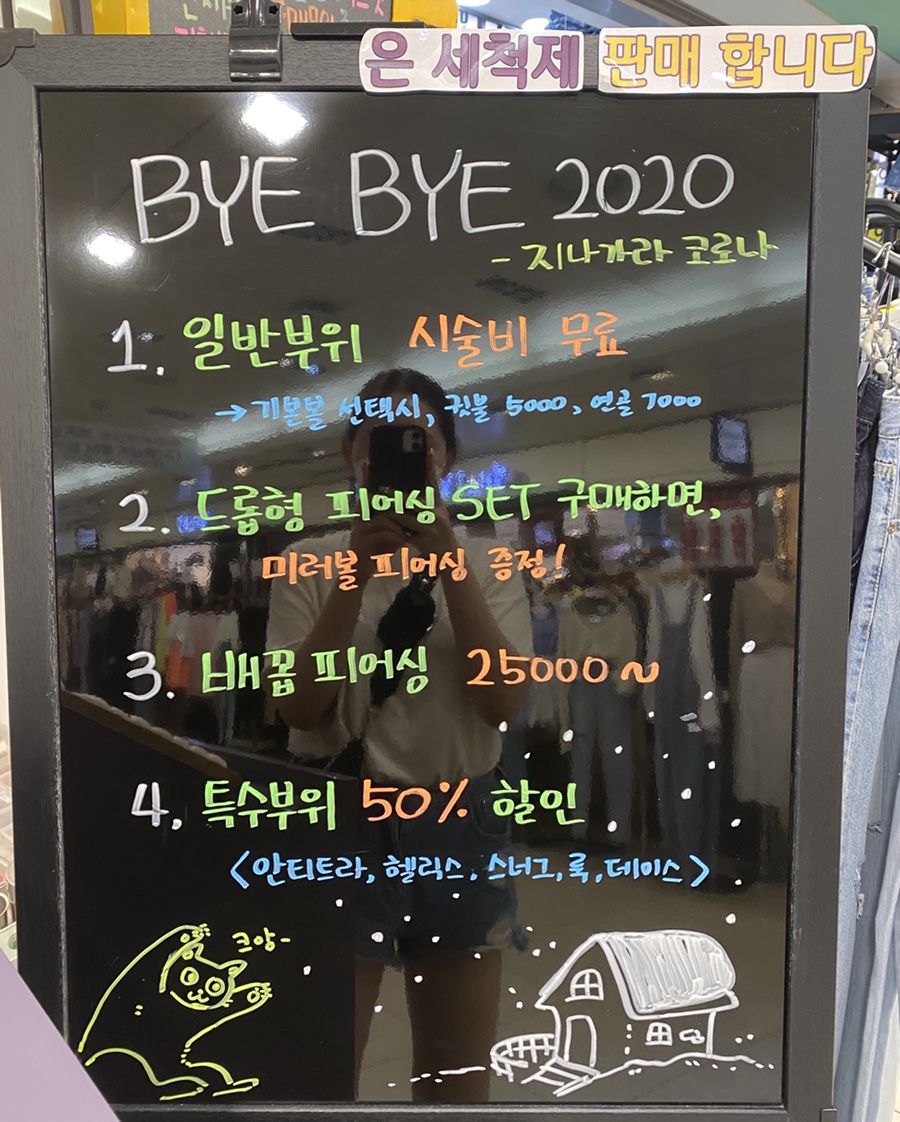 은 세척제 판매 합니다
BYE BYE 2020
- 지나가라 코로나
1. 일반부위 시술비 무료
→ 기본볼 선택시, 귓불 5000, 연골 7000
2. 드롭형 피어싱 SET 구매하면,
미러볼 피어싱 증정!
3. 배꼽 피어싱 25000~
4. 특수부위 50% 할인
<안티트라, 헬릭스, 스너그, 룩, 데이스>
크앙-